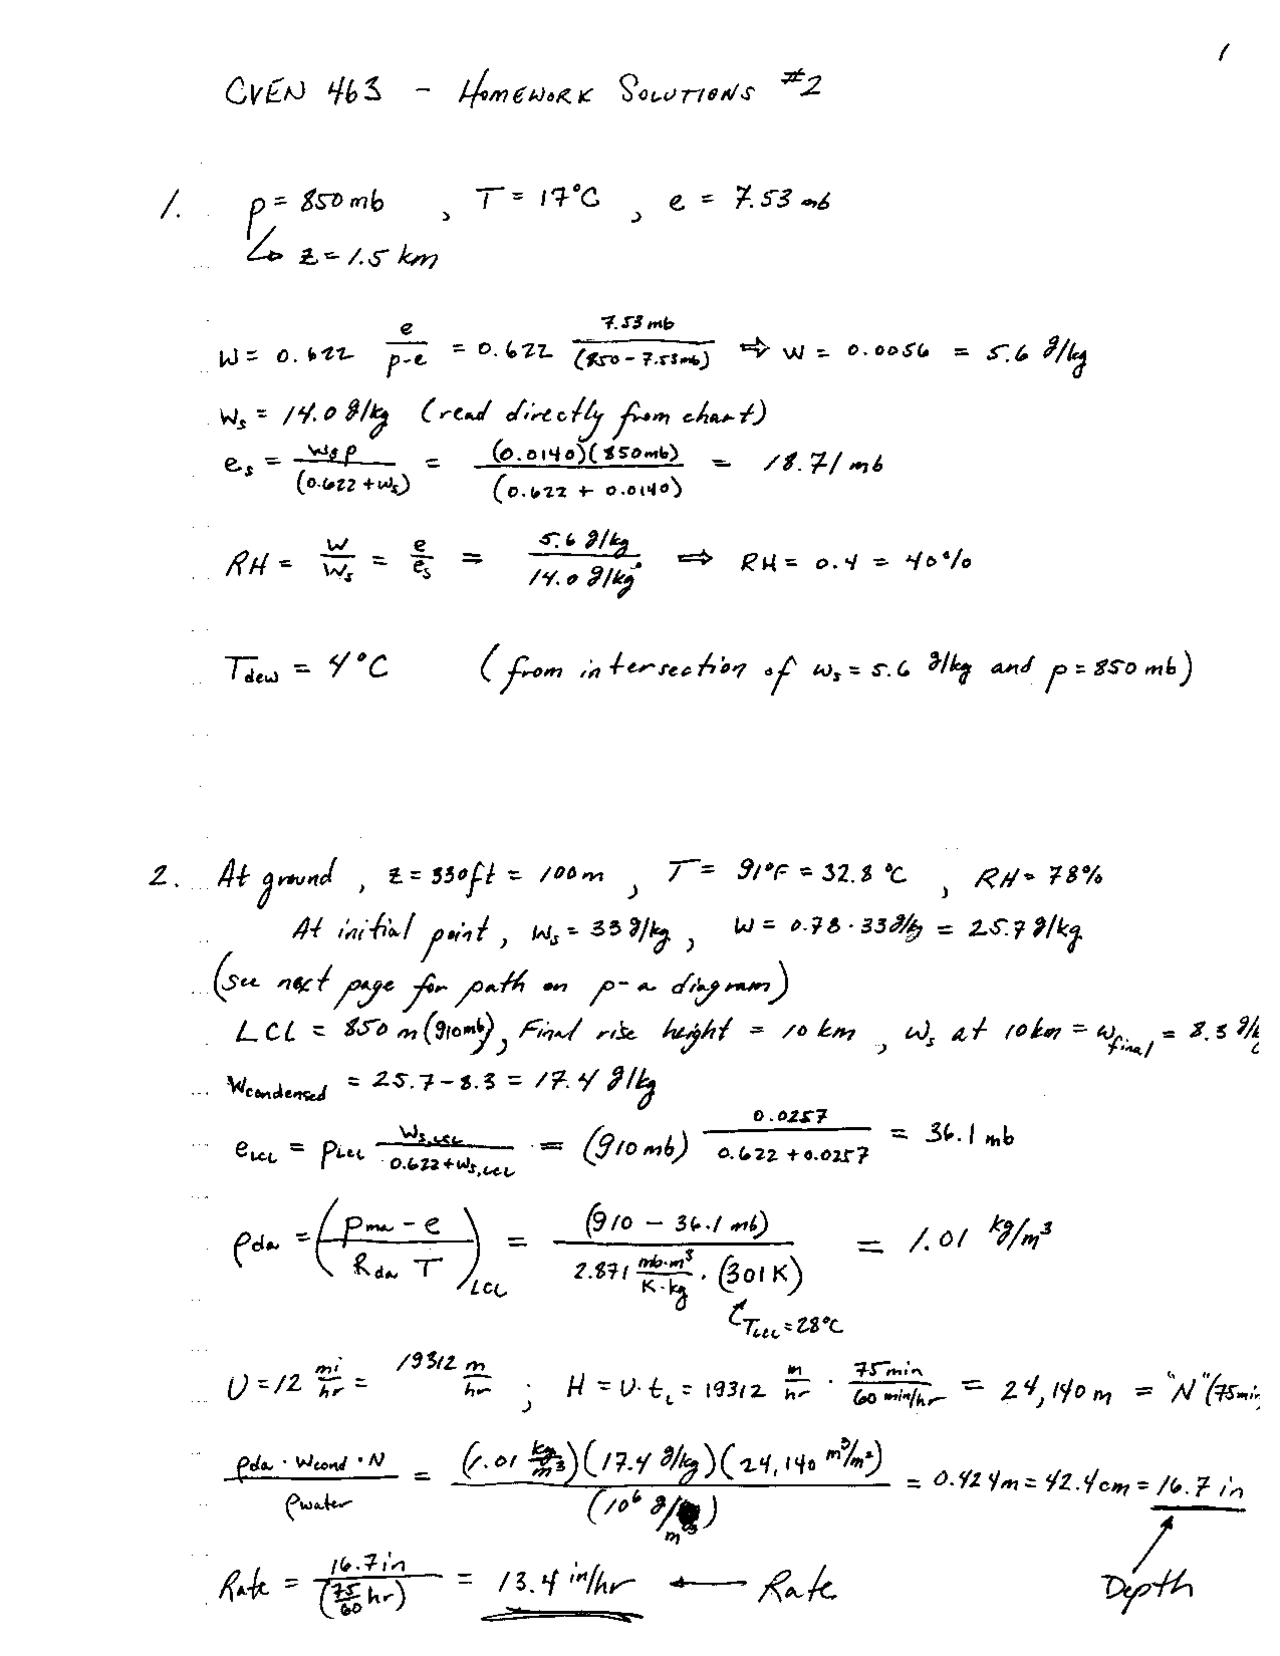 1
CVEN 463 - HOMEWORK SOLUTIONS #2
1. p = 850 mb , T = 17°C , e = 7.53 mb
↳ z = 1.5 km
w = 0.622 e/(p-e) = 0.622 7.53 mb/(850 - 7.53 mb) ⇒ w = 0.0056 = 5.6 g/kg
ws = 14.0 g/kg (read directly from chart)
es = ws p/(0.622 + ws) = (0.0140)(850mb)/(0.622 + 0.0140) = 18.71 mb
RH = w/ws = e/es = 5.6 g/kg/14.0 g/kg ⇒ RH = 0.4 = 40%
Tdew = 4°C (from intersection of ws = 5.6 g/kg and p = 850 mb)
2. At ground , z = 330ft = 100m , T = 91°F = 32.8 °C , RH = 78%
At initial point , ws = 33 g/kg , w = 0.78 · 33 g/kg = 25.7 g/kg
(see next page for path on p-a diagram)
LCL = 850 m (910mb), Final rise height = 10 km , ws at 10 km = wfinal = 8.3 g/k
wcondensed = 25.7 - 8.3 = 17.4 g/kg
eLCL = pLCL ws,LCL/(0.622 + ws,LCL) = (910 mb) 0.0257/(0.622 + 0.0257) = 36.1 mb
ρda = ((pma - e)/(Rda T))LCL = (910 - 36.1 mb)/(2.871 mb·m³/K·kg · (301 K)) = 1.01 kg/m³
TLCL = 28°C
U = 12 mi/hr = 19312 m/hr ; H = U·tc = 19312 m/hr · 75 min/60 min/hr = 24,140 m = "N" (75min
ρda · wcond · N/ρwater = (1.01 kg/m³)(17.4 g/kg)(24,140 m³/m²)/(10⁶ g/m³) = 0.424m = 42.4cm = 16.7 in
Rate = 16.7 in/(75/60 hr) = 13.4 in/hr ← Rate
Depth